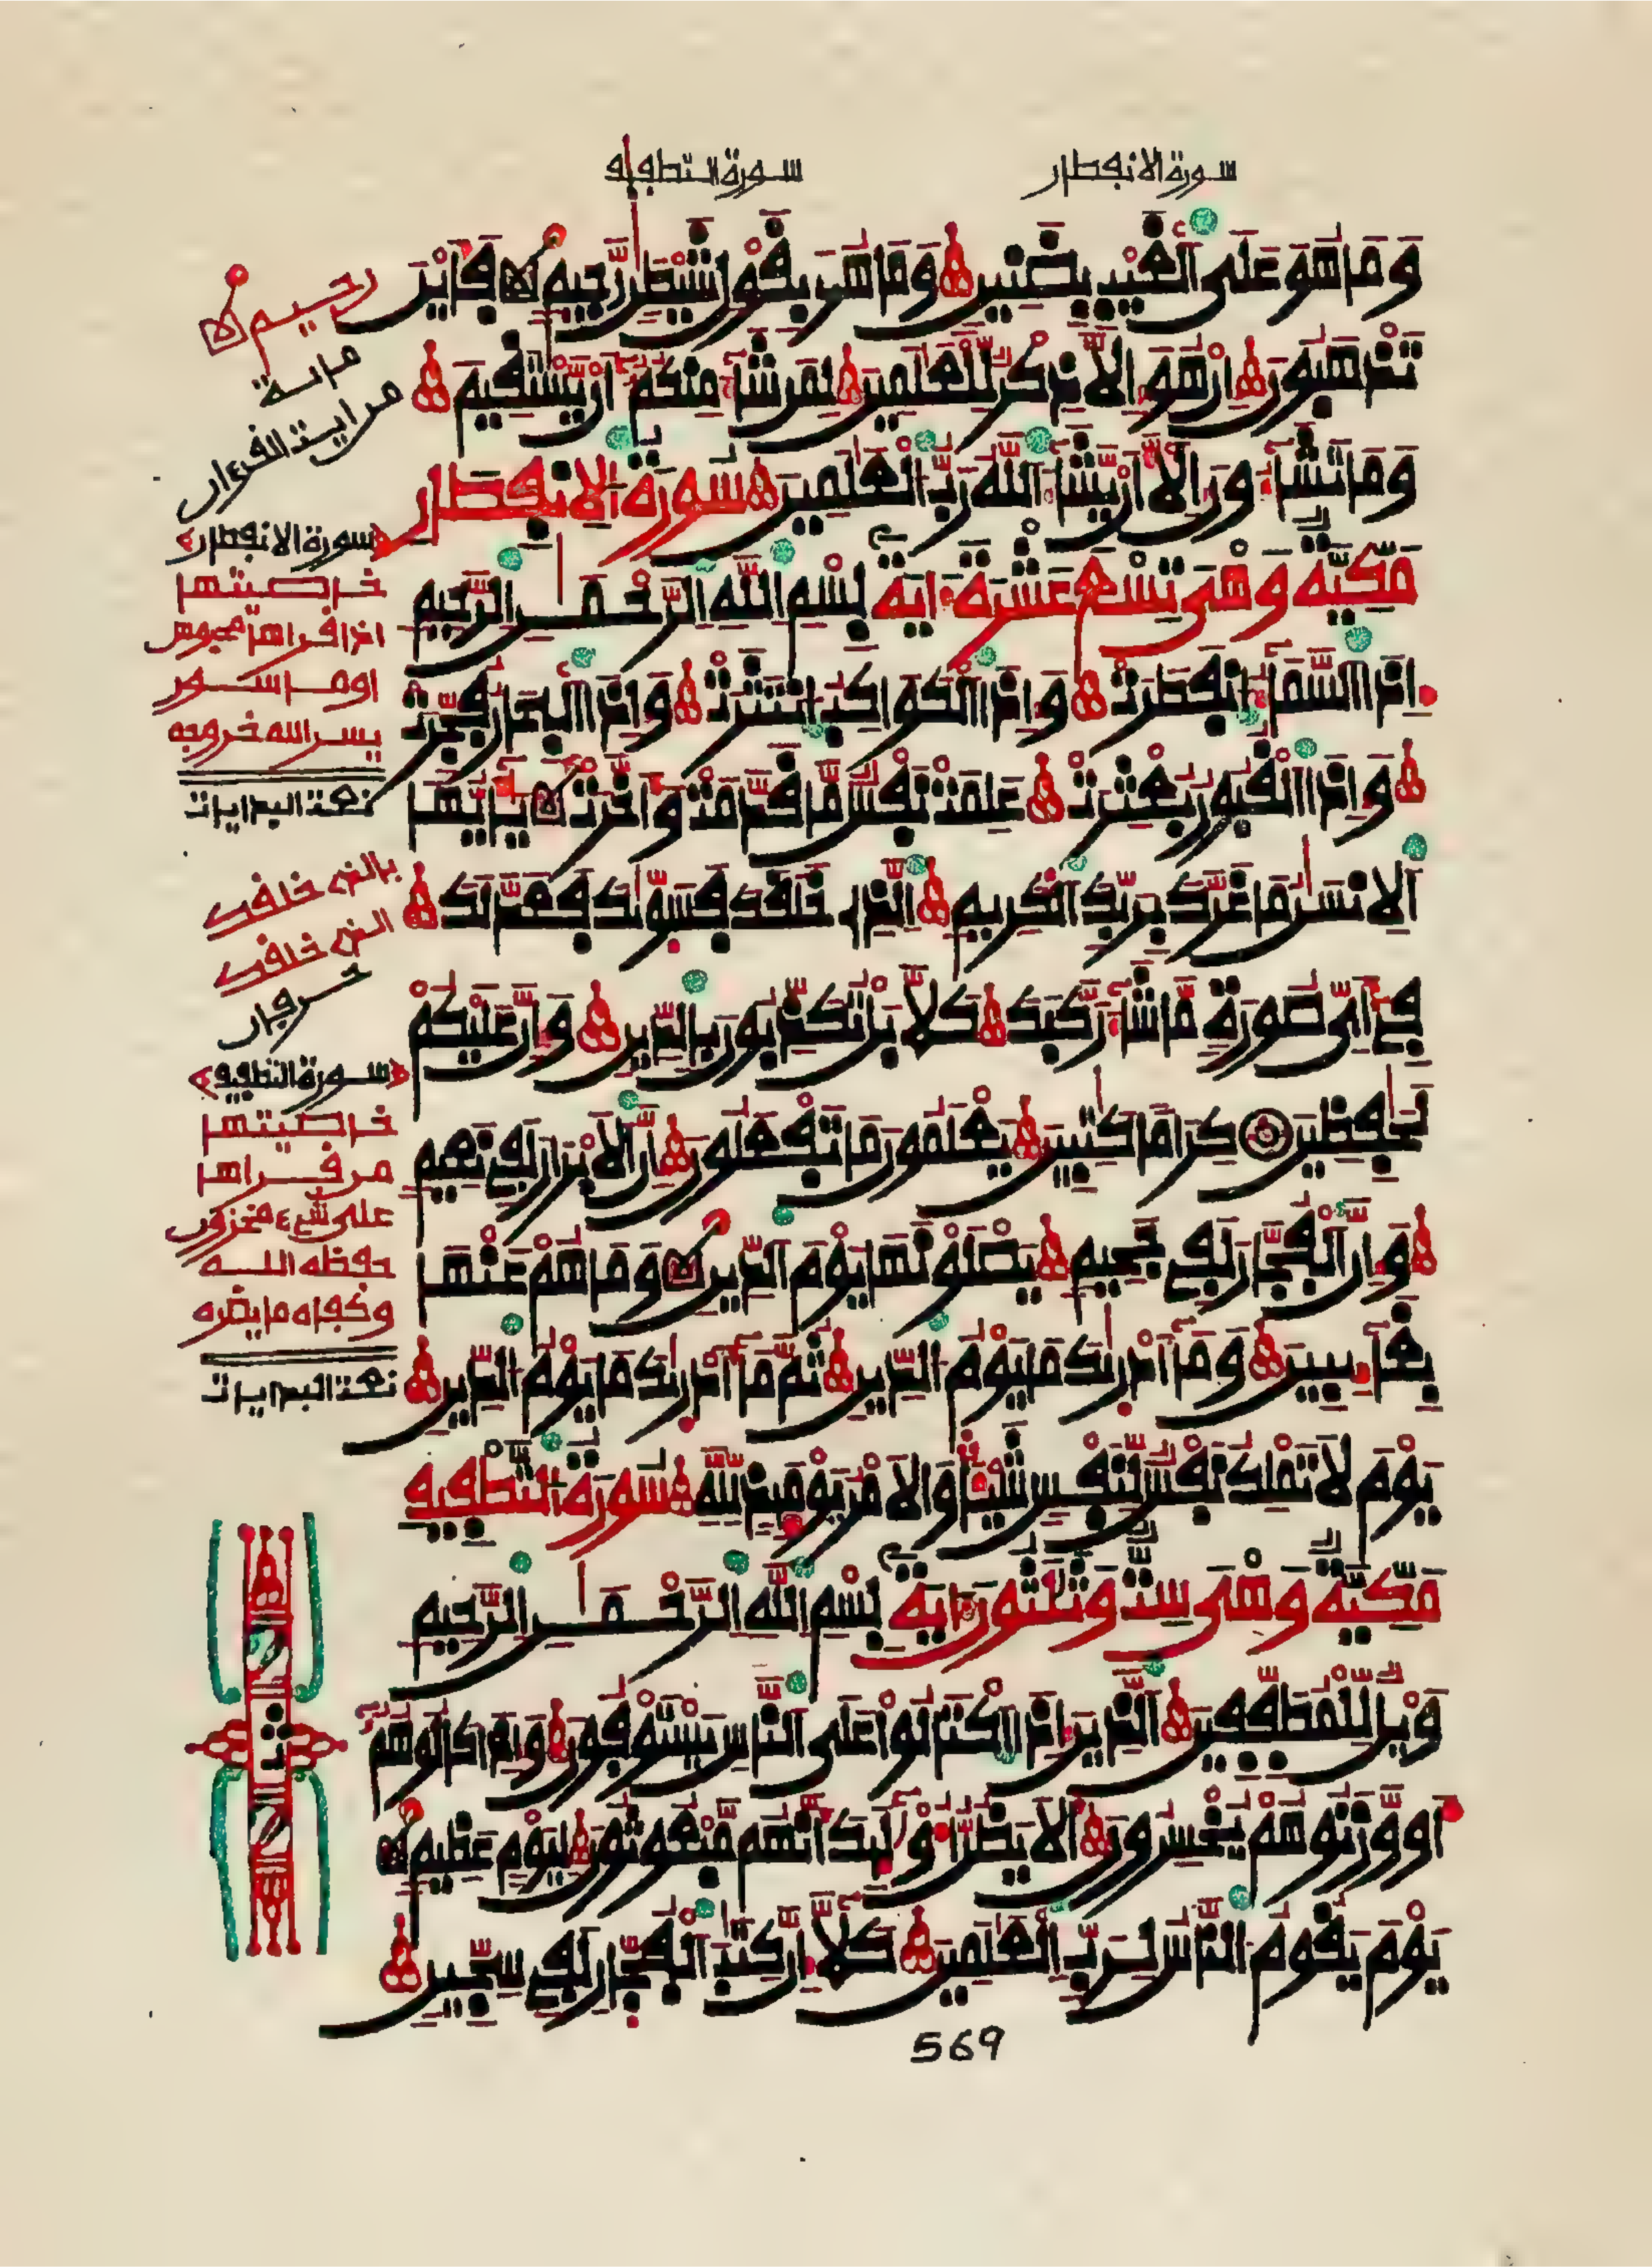 سورة الانفطار
سورة التطفيف
وَمَا هُوَ عَلَى الْغَيْبِ بِضَنِينٍ وَمَا هُوَ بِقَوْلِ شَيْطَنٍ رَّجِيمٍ فَأَيْنَ
تَذْهَبُونَ إِنْ هُوَ إِلَّا ذِكْرٌ لِّلْعَلَمِينَ لِمَن شَآءَ مِنكُمُۥٓ أَنْ يَّسْتَقِيمَ
وَمَا تَشَآءُونَ إِلَّآ أَنْ يَّشَآءَ اللَّهُ رَبُّ الْعَلَمِينَ سُورَةُ الِانفِطَار
مَكِّيَّةٌ وَهْىَ تِسْعَ عَشْرَةَ ءَايَةً بِسْمِ اللَّهِ الرَّحْمَنِ الرَّحِيمِ
إِذَا السَّمَآءُ انفَطَرَتْ وَإِذَا الْكَوَاكِبُ انتَثَرَتْ وَإِذَا الْبِحَارُ فُجِّرَتْ
وَإِذَا الْقُبُورُ بُعْثِرَتْ عَلِمَتْ نَفْسٌ مَّا قَدَّمَتْ وَأَخَّرَتْ يَأَيُّهَا
الْإِنسَنُ مَا غَرَّكَ بِرَبِّكَ الْكَرِيمِ الَّذِى خَلَقَكَ فَسَوَّىكَ فَعَدَّلَكَ
فِىٓ أَىِّ صُورَةٍ مَّا شَآءَ رَكَّبَكَ كَلَّا بَلْ تُكَذِّبُونَ بِالدِّينِ وَإِنَّ عَلَيْكُمْ
لَحَفِظِينَ كِرَامًا كَتِبِينَ يَعْلَمُونَ مَا تَفْعَلُونَ إِنَّ الْأَبْرَارَ لَفِى نَعِيمٍ
وَإِنَّ الْفُجَّارَ لَفِى جَحِيمٍ يَصْلَوْنَهَا يَوْمَ الدِّينِ وَمَا هُمْ عَنْهَا
بِغَآئِبِينَ وَمَآ أَدْرَىكَ مَا يَوْمُ الدِّينِ ثُمَّ مَآ أَدْرَىكَ مَا يَوْمُ الدِّينِ
يَوْمَ لَا تَمْلِكُ نَفْسٌ لِّنَفْسٍ شَيْئًا وَالْأَمْرُ يَوْمَئِذٍ لِّلَّهِ سُورَةُ التَّطْفِيفِ
مَكِّيَّةٌ وَهْىَ سِتٌّ وَثَلَثُونَ ءَايَةً بِسْمِ اللَّهِ الرَّحْمَنِ الرَّحِيمِ
وَيْلٌ لِّلْمُطَفِّفِينَ الَّذِينَ إِذَا اكْتَالُوا عَلَى النَّاسِ يَسْتَوْفُونَ وَإِذَا كَالُوهُمُۥٓ
أَو وَّزَنُوهُمْ يُخْسِرُونَ أَلَا يَظُنُّ أُوْلَئِكَ أَنَّهُم مَّبْعُوثُونَ لِيَوْمٍ عَظِيمٍ
يَوْمَ يَقُومُ النَّاسُ لِرَبِّ الْعَلَمِينَ كَلَّآ إِنَّ كِتَبَ الْفُجَّارِ لَفِى سِجِّينٍ
رحيم
سورة الانفطار
خاصيتها
اذا قراها مجوس
او ماسور
يسر الله خروجه
الذى خلقك
سورة التطفيف
خاصيتها
من قراها
على شىء مخزون
حفظه الله
وكفاه ما يضره
569